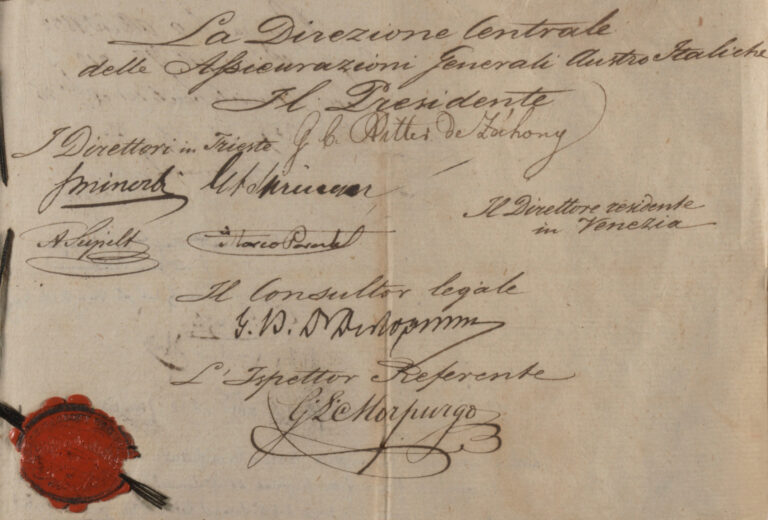 La Direzione Centrale
delle Assicurazioni Generali Austro Italiche
Il Presidente
G. C. Ritter de Záhony
I Direttori in Trieste
Minerbi
Il Direttore residente
in Venezia
Marco Parente
Il Consultor legale
G. B. Dr
L'Ispettor Referente
Morpurgo